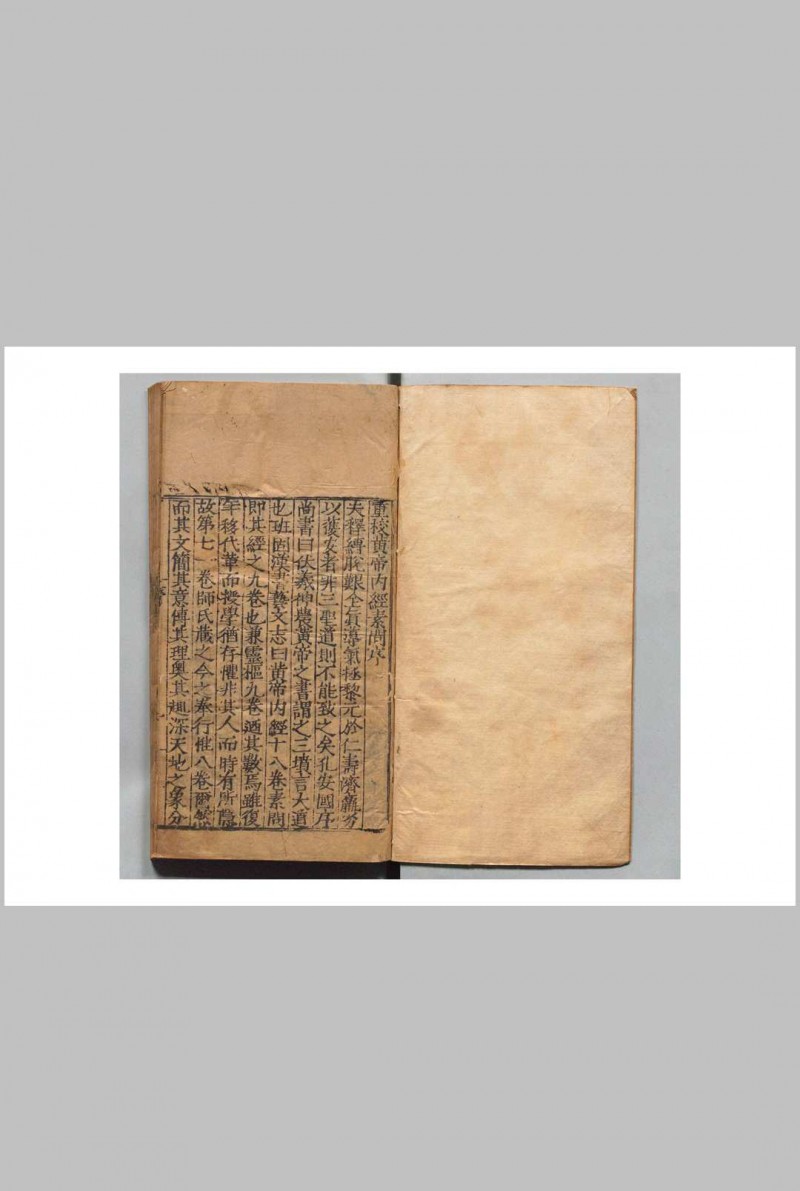 重校黃帝內經素問序
夫釋縛脫艱全眞導氣拯黎元於仁壽濟羸劣
以獲安者非三聖道則不能致之矣孔安國序
尚書曰伏羲神農黃帝之書謂之三墳言大道
也班固漢書藝文志曰黃帝內經十八卷素問
即其經之九卷也兼靈樞九卷迺其數焉雖復
年移代革而授學猶存懼非其人而時有所隱
故第七一卷師氏藏之今之奉行惟八卷爾然
而其文簡其意博其理奧其趣深天地之象分